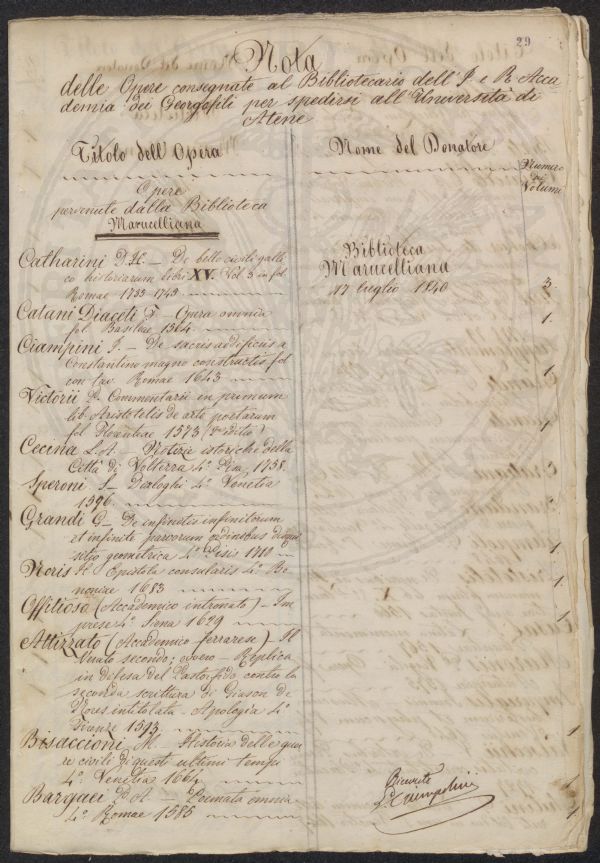 29
Nota
delle Opere consegnate al Bibliotecario dell'I e R Acca
demia dei Georgofili per spedirsi all'Università di
Atene
Titolo dell'Opera
Nome del Donatore
Numero
dei
Volumi
Opere
pervenute dalla Biblioteca
Marucelliana
Biblioteca
Marucelliana
17 luglio 1840
Catharini D. — De bello civili galli
co historiarum libri XV. Vol 3 in fol
Romae 1733-1745 3
Catani Diaceti F — Opera omnia
fol Basileae 1564 1
Ciampini J. — De sacris aedificiis a
Constantino magno constructis fol
con tav. Romae 1643
Victorii P. Commentarii in primum
lib Aristotelis de arte poetarum
fol Florentiae 1573 1
Cecina L.A. — Notizie istoriche della
Città di Volterra 4° Pisa 1758
Speroni S — Dialoghi 4° Venetia
1596
Grandi G — De infinitis infinitorum
et infinite parvorum ordinibus disqui
sitio geometrica 4° Pisis 1710
Noris H. Epistola consularis 4° Bo
noniae 1683 1
Offitioso (Accademico intronato) — Im
prese 4° Siena 1629 1
Attizzato (Accademico ferrarese) — Il
Verato secondo; ovvero — Replica
in defesa del Pastorfido contro la
seconda scrittura di Giason de
Nores intitolata — Apologia 4°
Firenze 1593 1
Bisaccioni M. — Historia delle guer
re civili di questi ultimi tempi
4° Venetia 1664
Bargaei P. A — Poemata omnia
4° Romae 1585 1
Ricevute